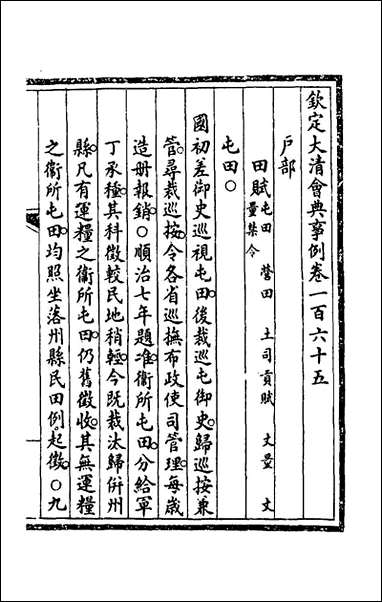 欽定大清會典事例卷一百六十五
戶部
田賦屯田 營田 土司貢賦 丈量 丈
量禁令
屯田○
國初差御史巡視屯田後裁巡屯御史歸巡按兼
管尋裁巡按令各省巡撫布政使司管理每歲
造册報銷○順治七年題准衞所屯田分給軍
丁承種其科徵較民地稍輕今既裁汰歸併州
縣凡有運糧之衞所屯田仍舊徵收其無運糧
之衞所屯田均照坐落州縣民田例起徵○九